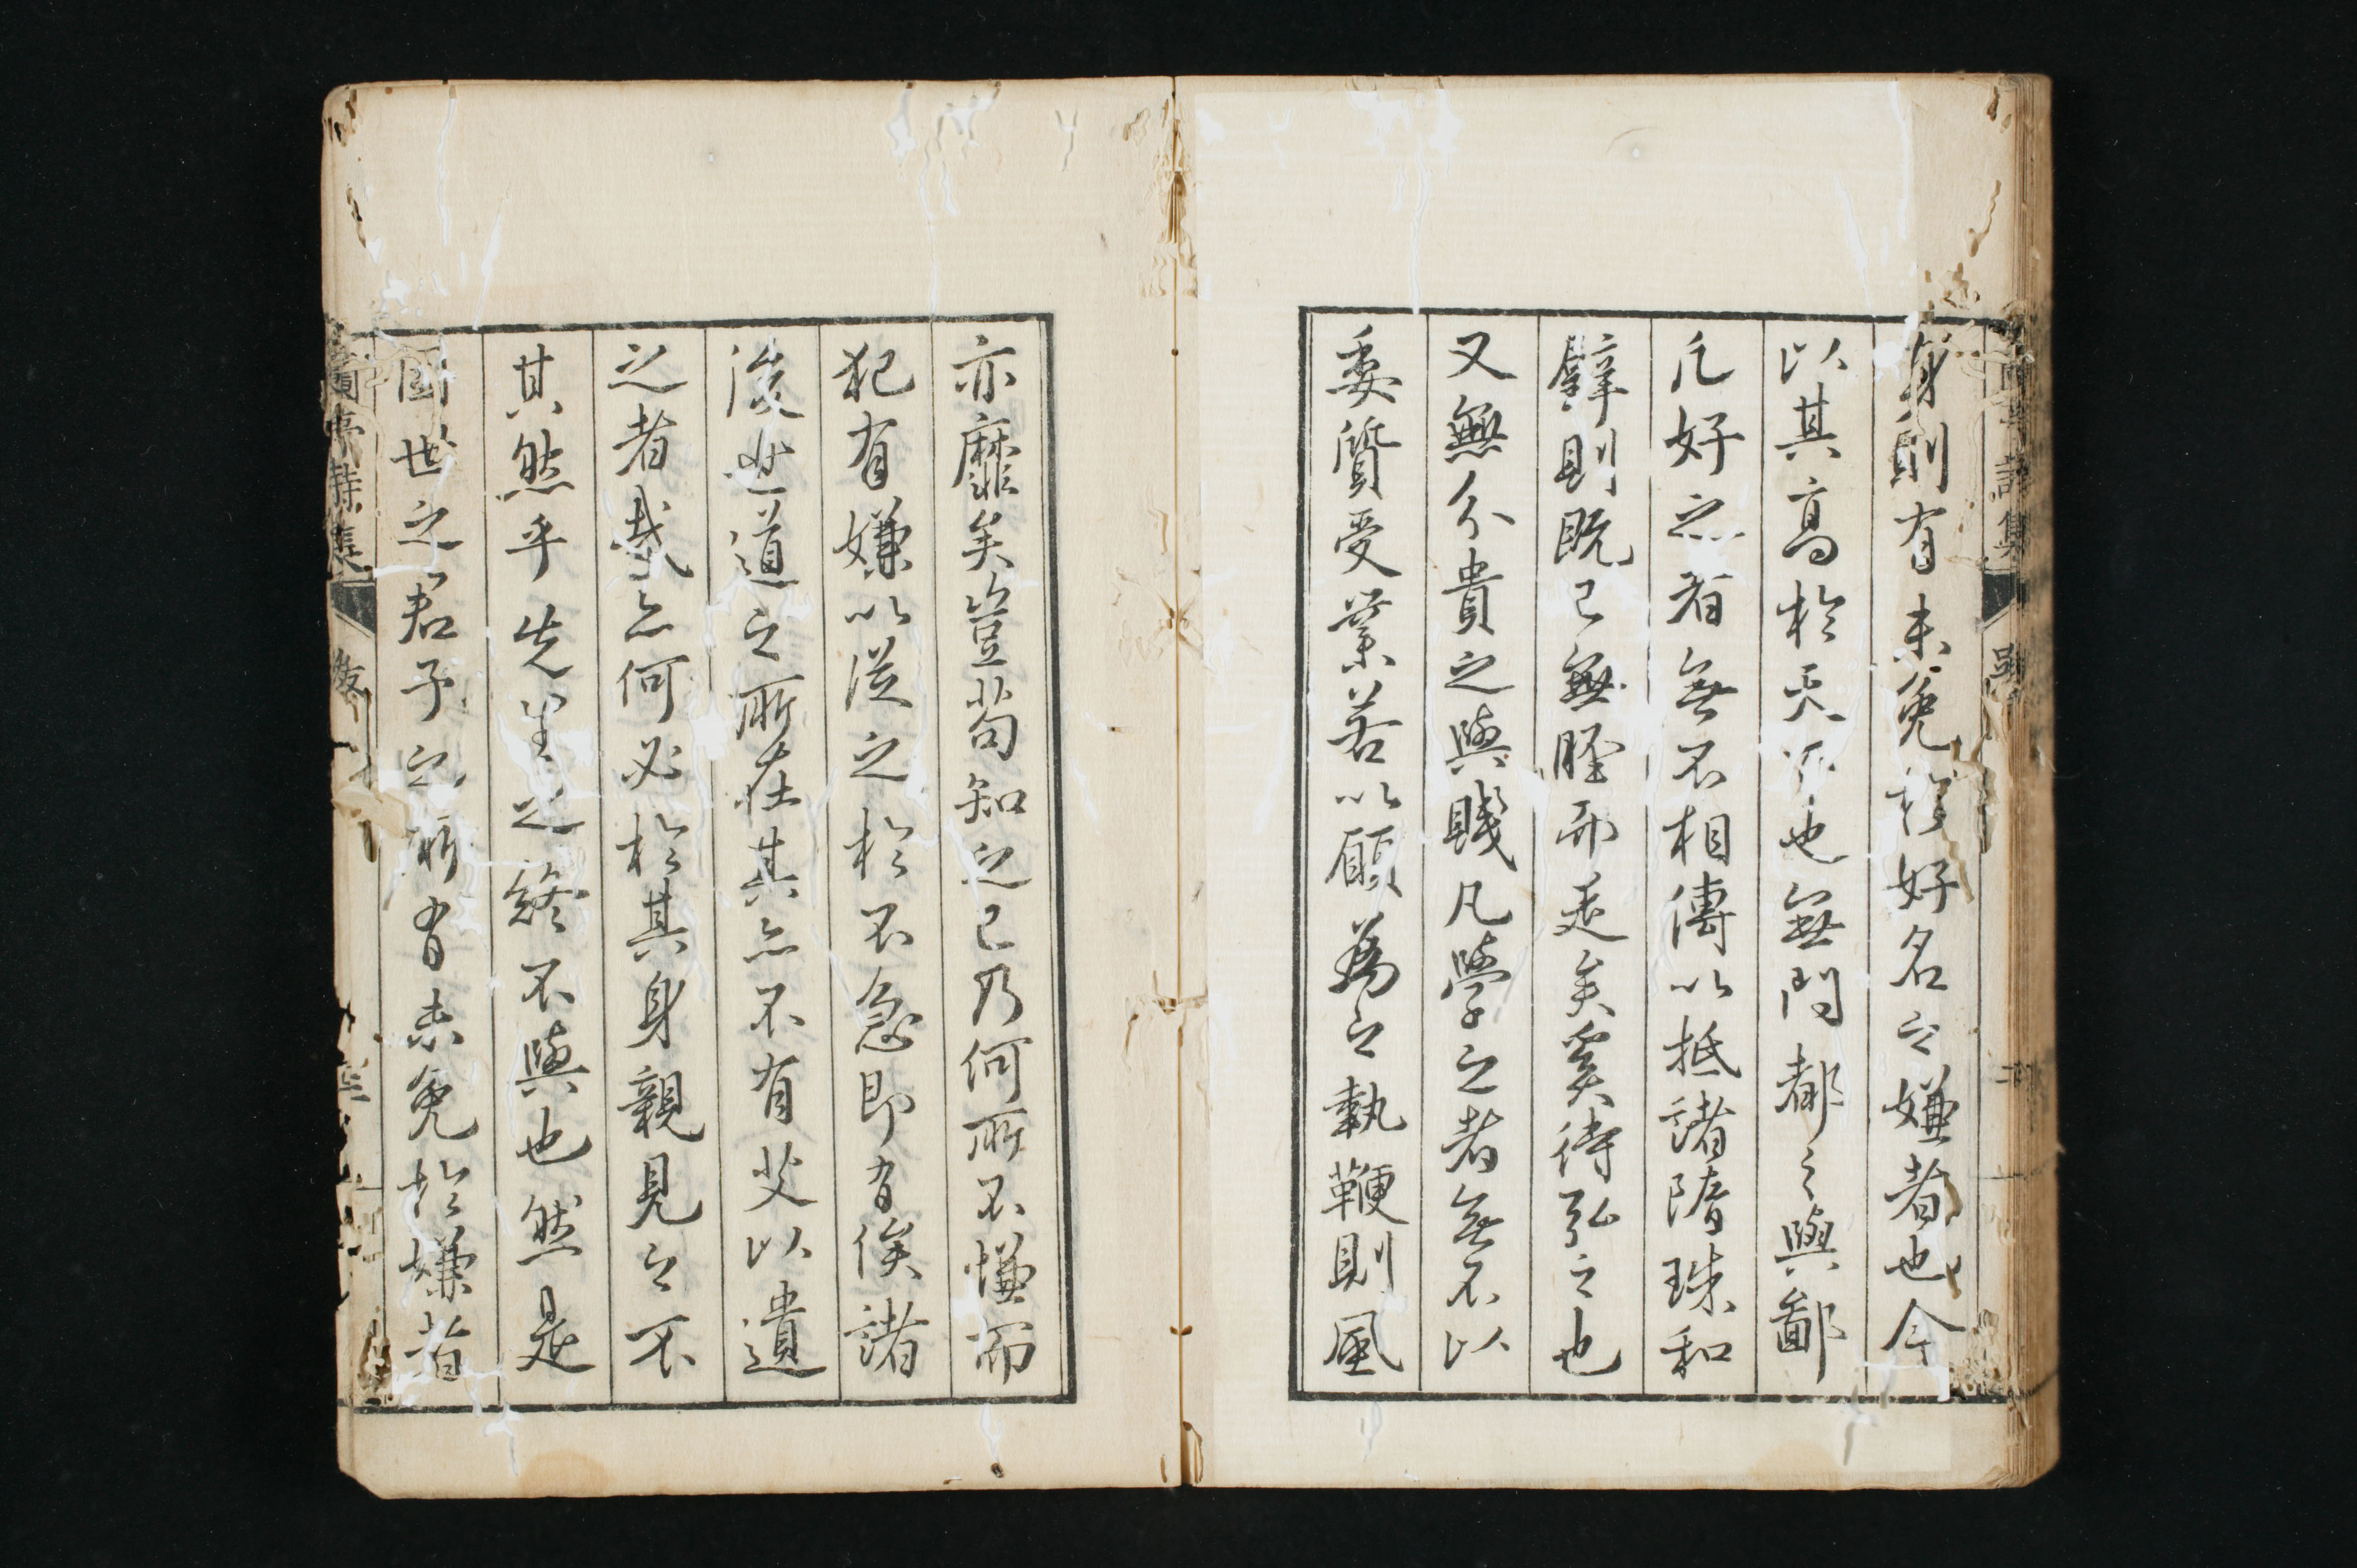 身則有未免於好名之嫌者也今
以其高於天下也無問都之與鄙
凡好之者無不相傳以抵諸隋珠和
璧則既已無脛而走矣奚待弘之也
又無分貴之與賤凡學之者無不以
委質受業若以願為之執鞭則風
亦靡矣豈苟知之已乃何所不慊而
犯有嫌以從之於不急即有俟諸
後世道之所在其亦不有投以遺
之者哉亦何必於其身親見之不
其然乎先生之終不與也然是
固世之君子之所有未免於嫌者
蘭亭詩集 跋